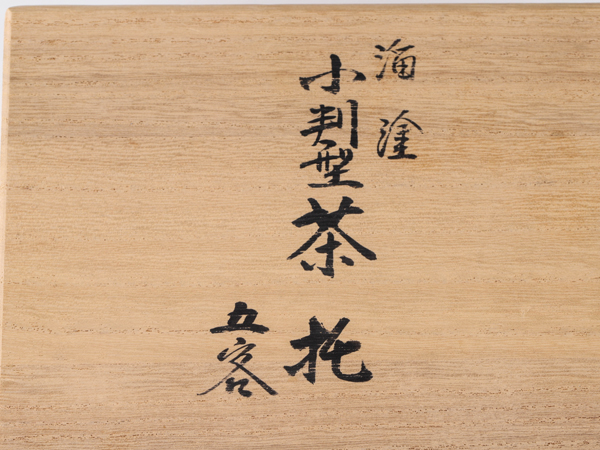 溜塗
小判型茶托
五客